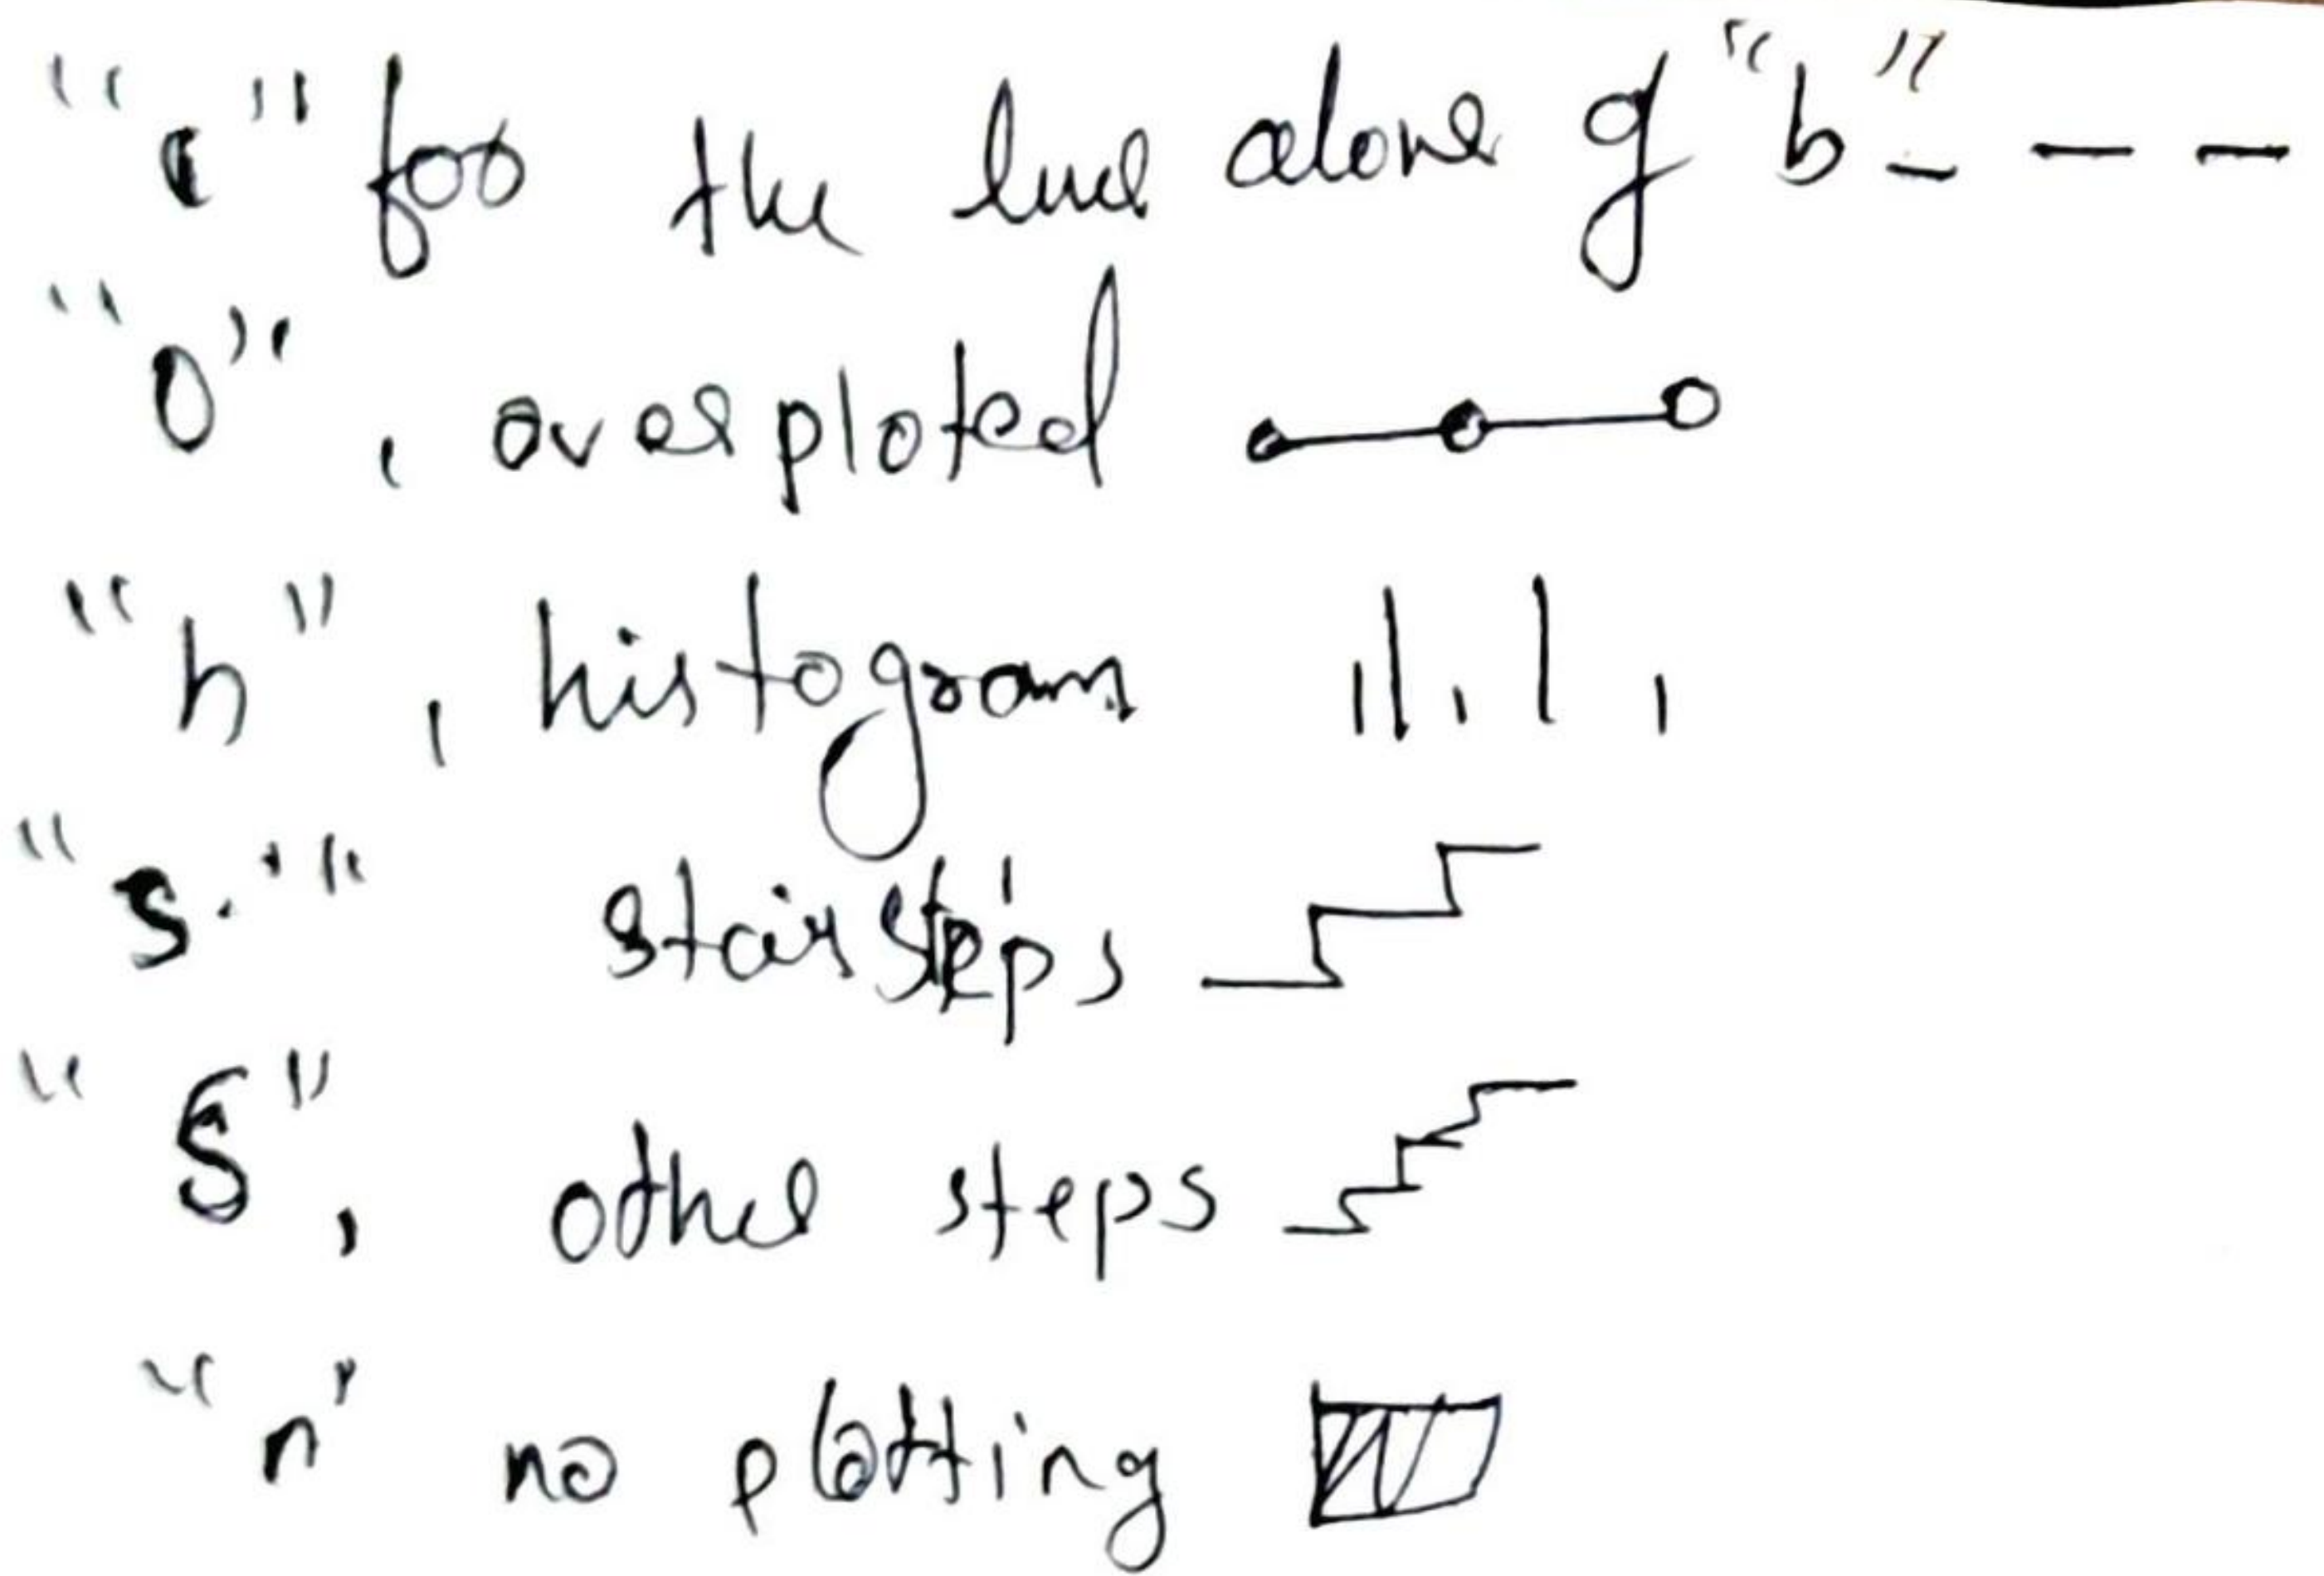 "c" for the line alone of "b" - - -
"o", overploted
"h", histogram
"s." stair steps
"S", other steps
"n" no plotting